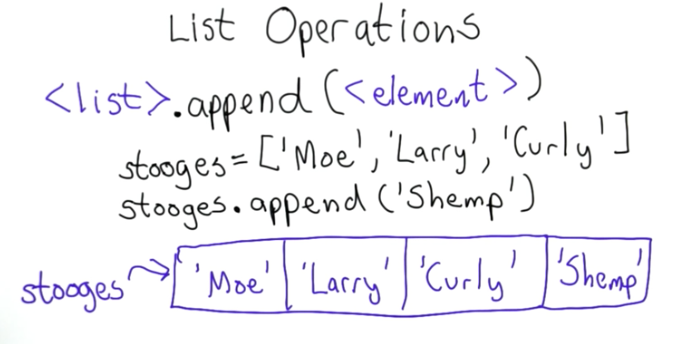 List Operations
<list>.append(<element>)
stooges = ['Moe', 'Larry', 'Curly']
stooges.append('Shemp')
stooges 'Moe' 'Larry' 'Curly' 'Shemp'